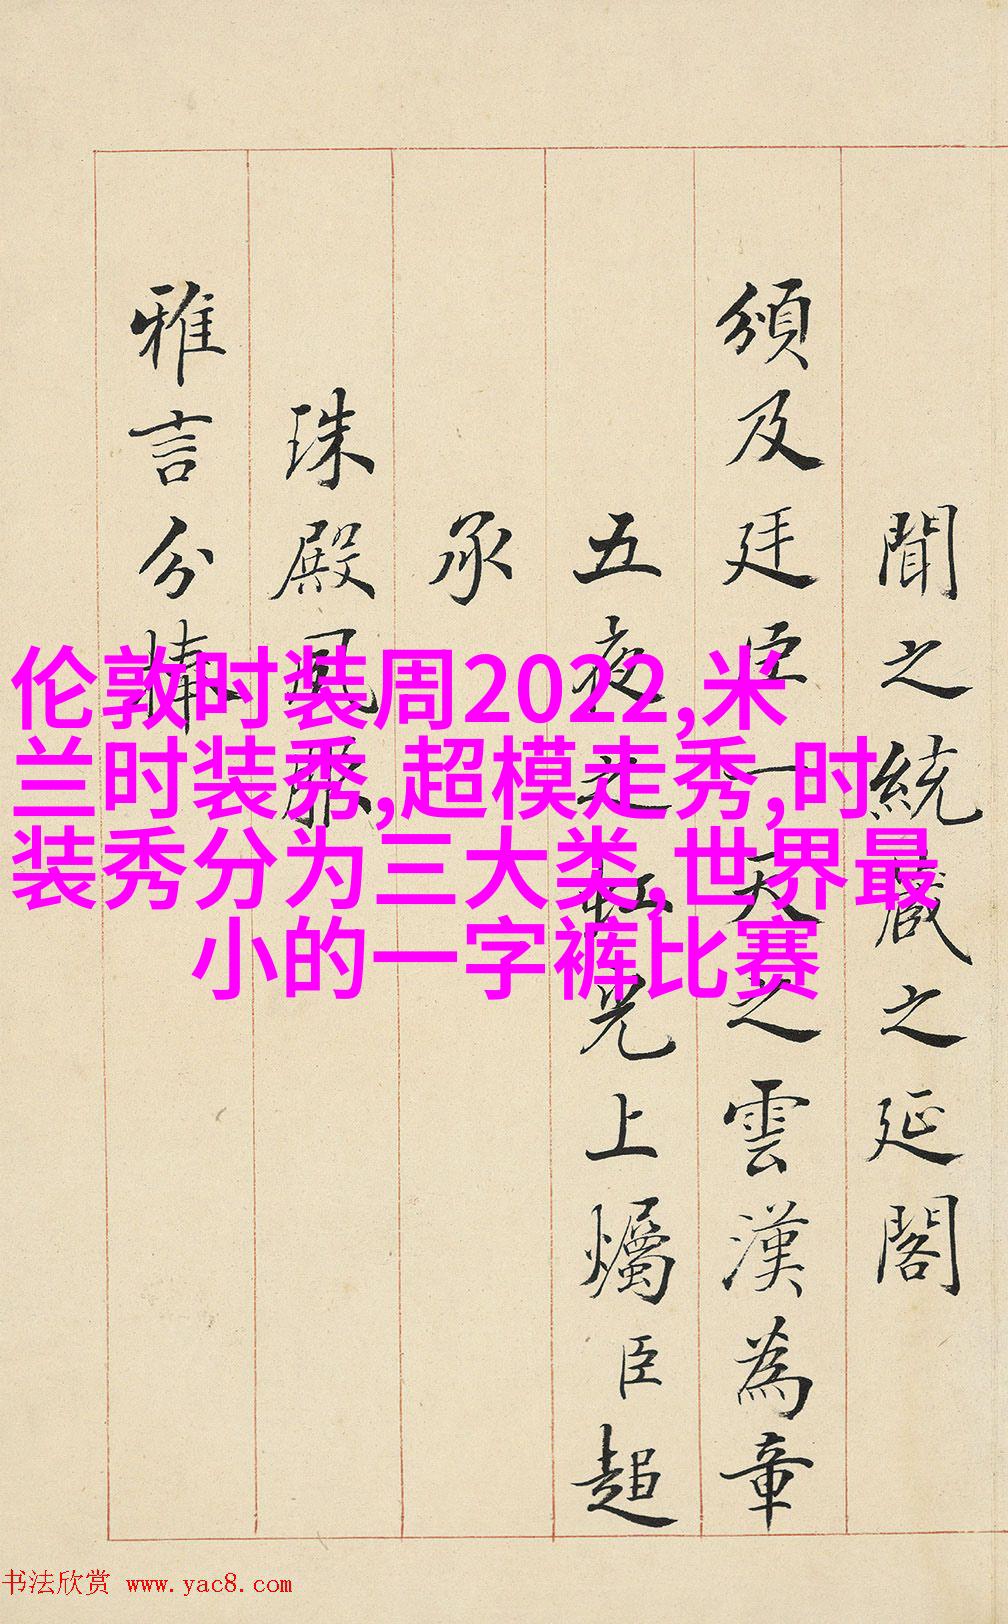 聞之統藏之延閣
頒及廷臣一天之雲漢為章
五夜之虹光上爥臣超
承
珠殿風
雅言分
伦敦时装周2022,米
兰时装秀,超模走秀,时
装秀分为三大类,世界最
小的一字裤比赛
书法欣赏 www.yac8.com